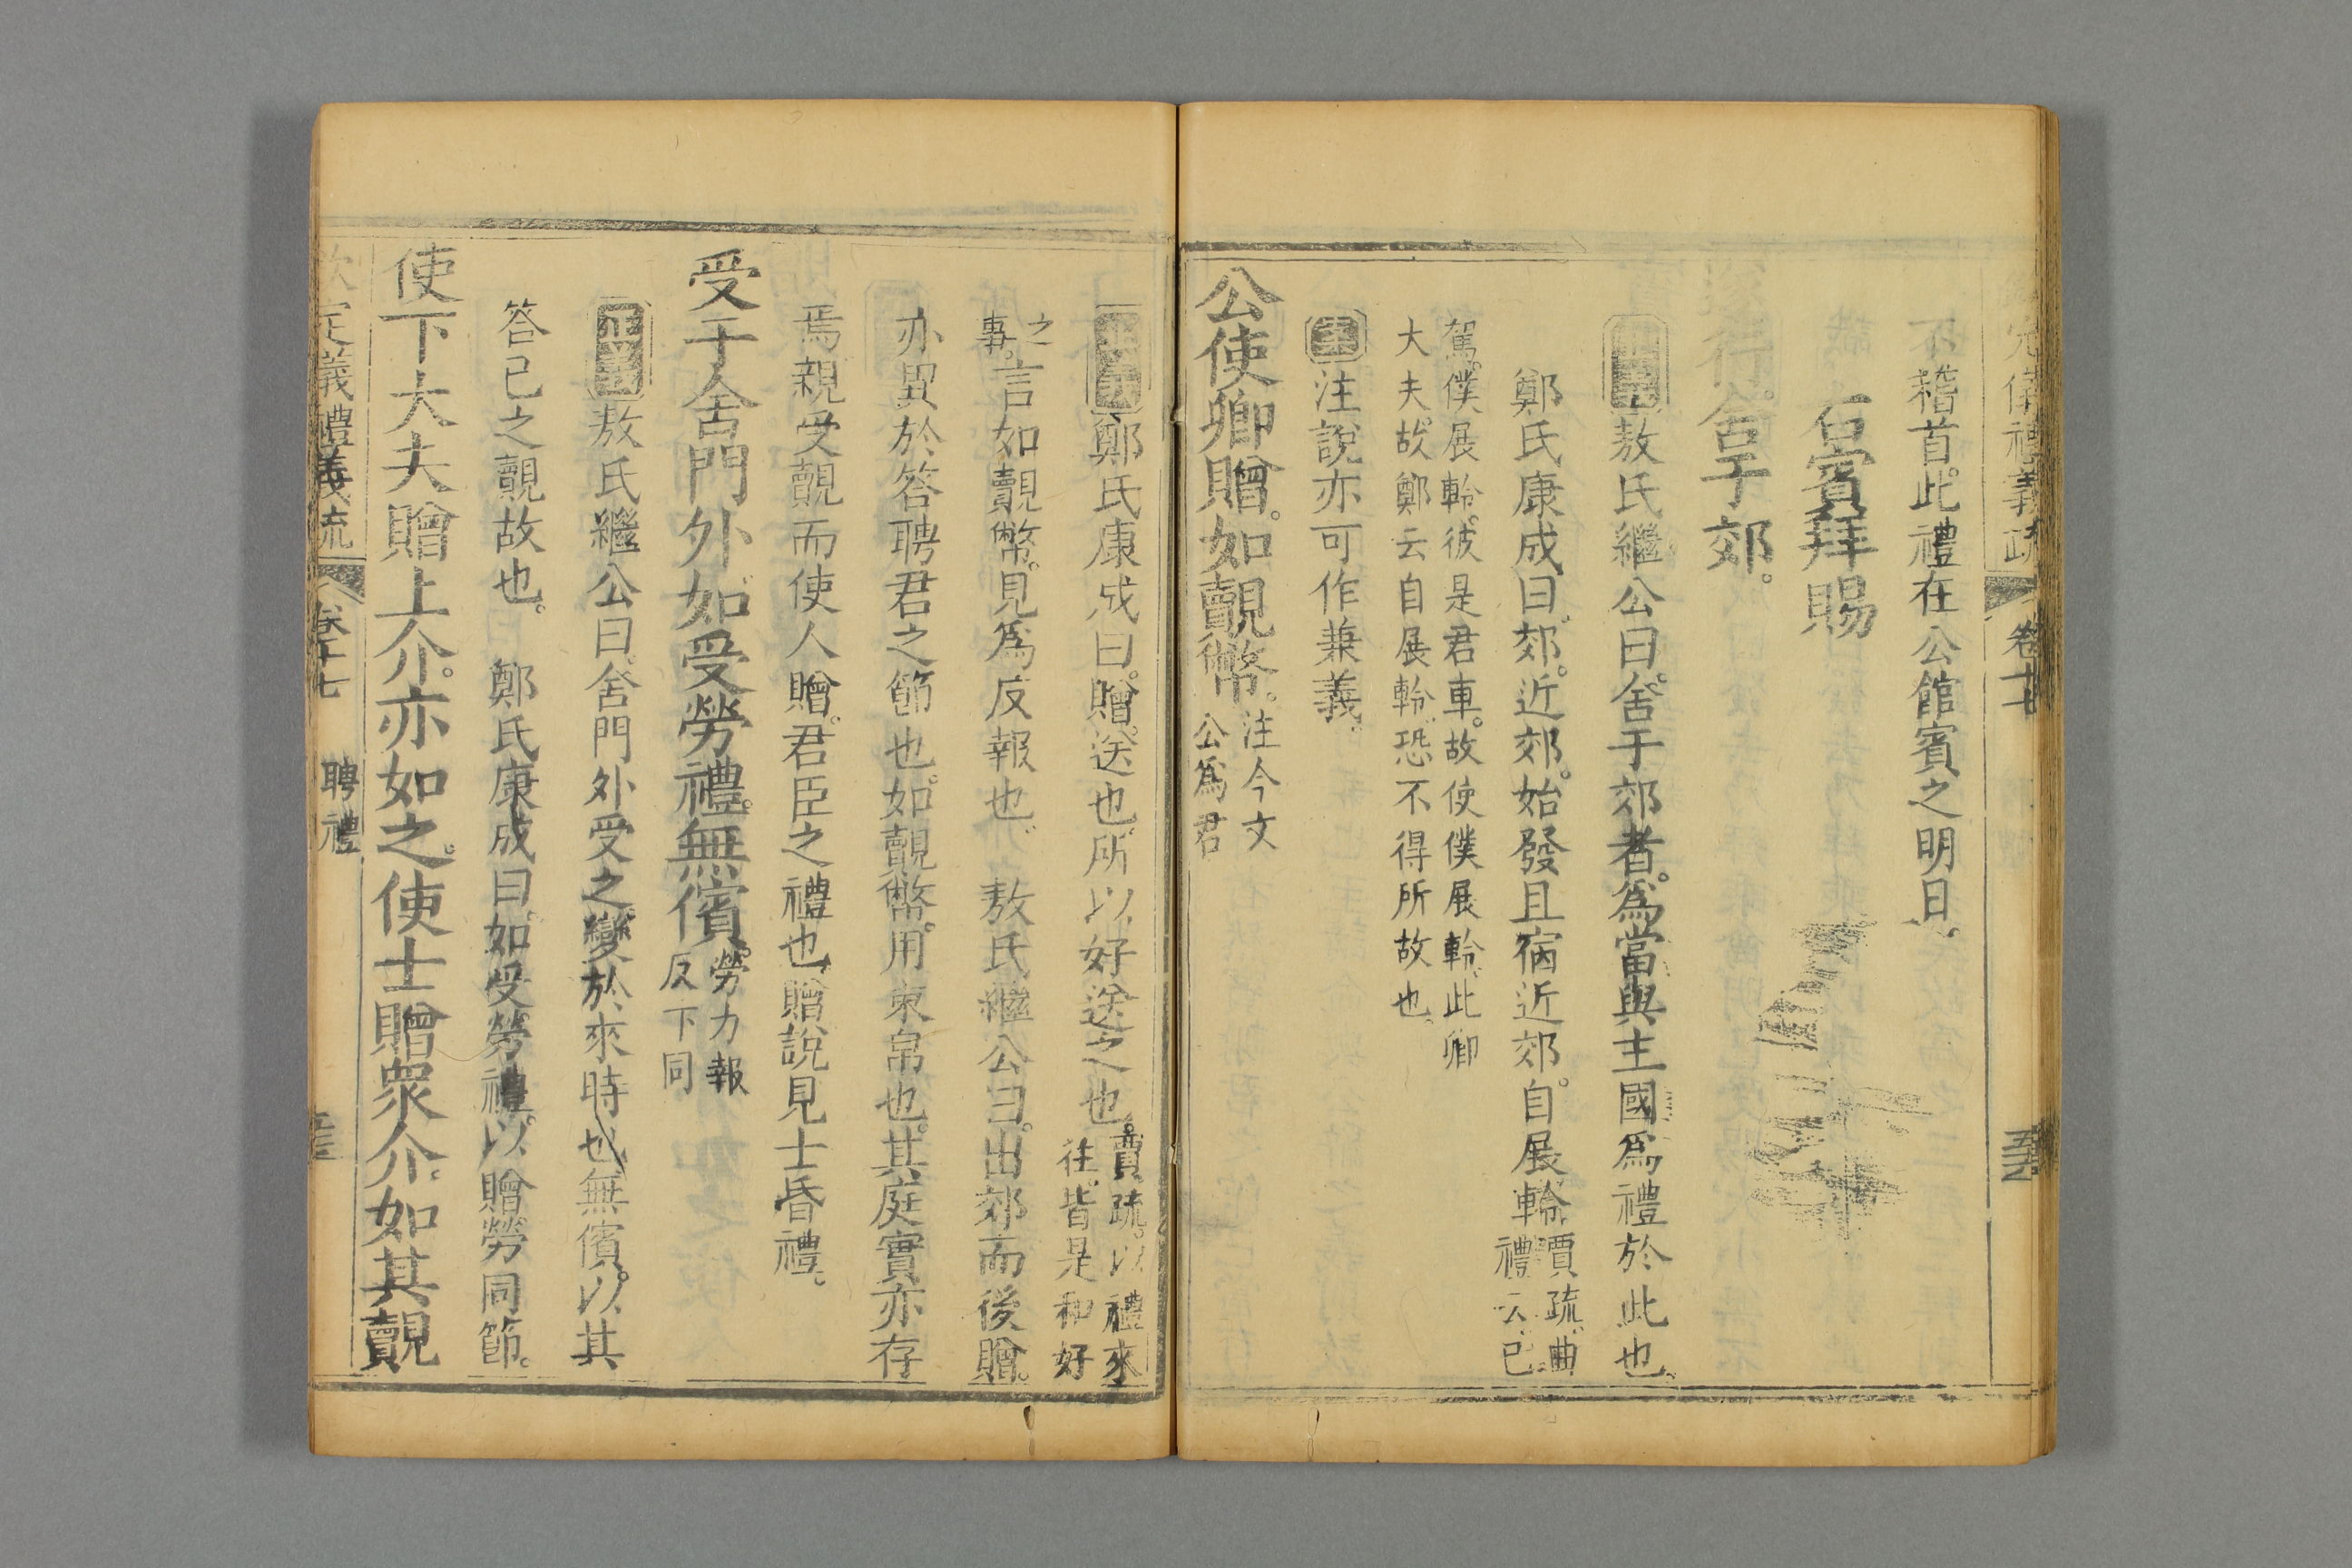 定儀禮義疏 卷十七
不稽首。此禮在公館賓之明日。
右賓拜賜
遂行。舍于郊。
正義 敖氏繼公曰。舍于郊者。爲當與主國爲禮於此也。
鄭氏康成曰。郊。近郊。始發且宿近郊。自展軨。賈疏。曲禮云。已
駕。僕展軨。彼是君車。故使僕展軨。此卿
大夫。故鄭云自展軨。恐不得所故也。
案 注說亦可作兼義。
公使卿贈。如覿幣。注今文公爲君
正義 鄭氏康成曰。贈。送也。所以好送之也。賈疏。以禮來往。皆是和好
之事。言如覿幣。見爲反報也。 敖氏繼公曰。出郊而後贈。
亦異於答聘君之節也。如覿幣。用束帛也。其庭實亦存
焉。親受覿而使人贈。君臣之禮也。贈說見士昏禮。
受于舍門外。如受勞禮。無儐。勞力報反下同
正義 敖氏繼公曰。舍門外受之。變於來時也。無儐。以其
答己之覿故也。 鄭氏康成曰。如受勞禮。以贈勞同節。
使下大夫贈上介。亦如之。使士贈衆介。如其覿
定儀禮義疏 卷十七 聘禮